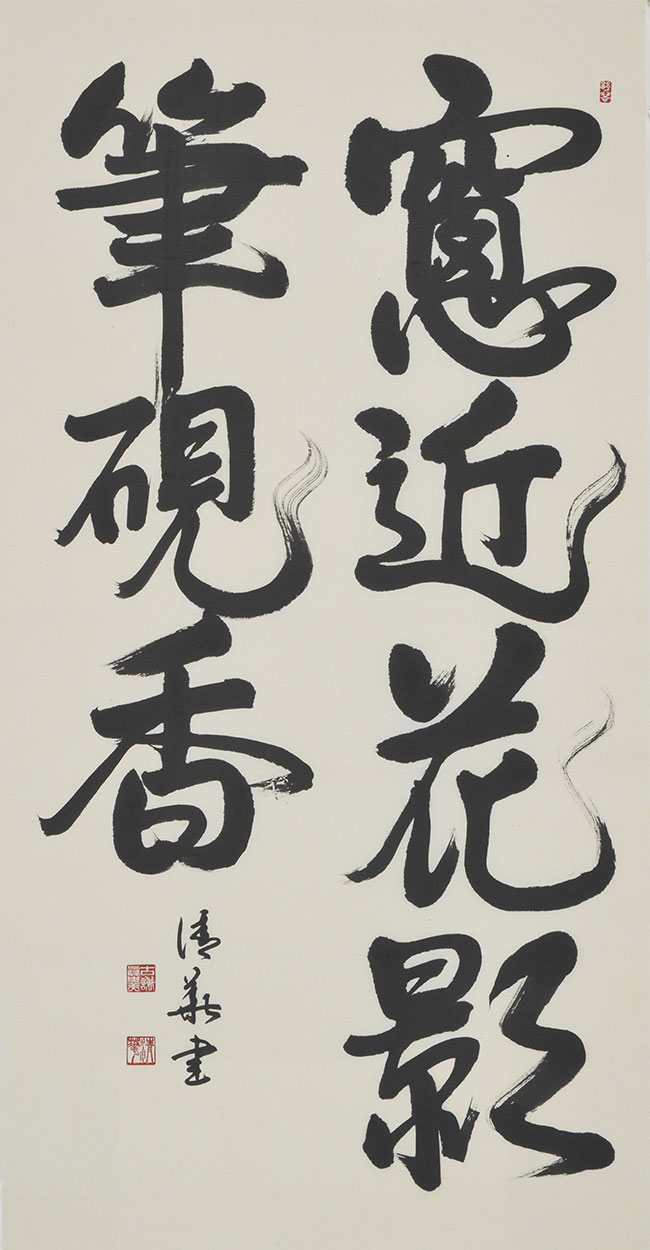 窻近花影
筆硯香
清華書